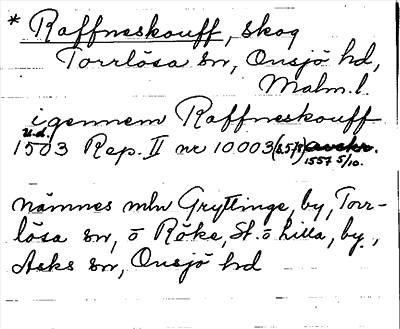 * Raffneskouff, skog
Torrlösa sn, Onsjö hd,
Malm. l.
igennem Raffneskouff
u.d.
1503 Rep. II nr 10003 (s. 5/8) avskr.
1557 5/10.
nämnes mln Gryttinge, by, Torr-
lösa sn, o Röke, St. o Lilla, by,
Asks sn, Onsjö hd